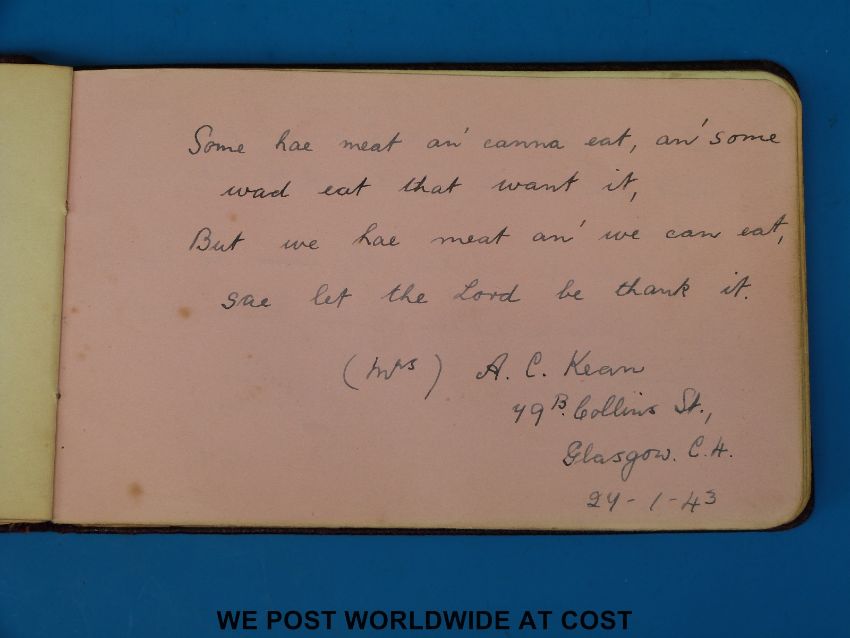 Some hae meat an' canna eat, an' some
wad eat that want it,
But we hae meat an' we can eat,
sae let the Lord be thank it.
(Mrs) A. C. Kean
79B. Collins St.,
Glasgow. C.4.
24-1-43
WE POST WORLDWIDE AT COST